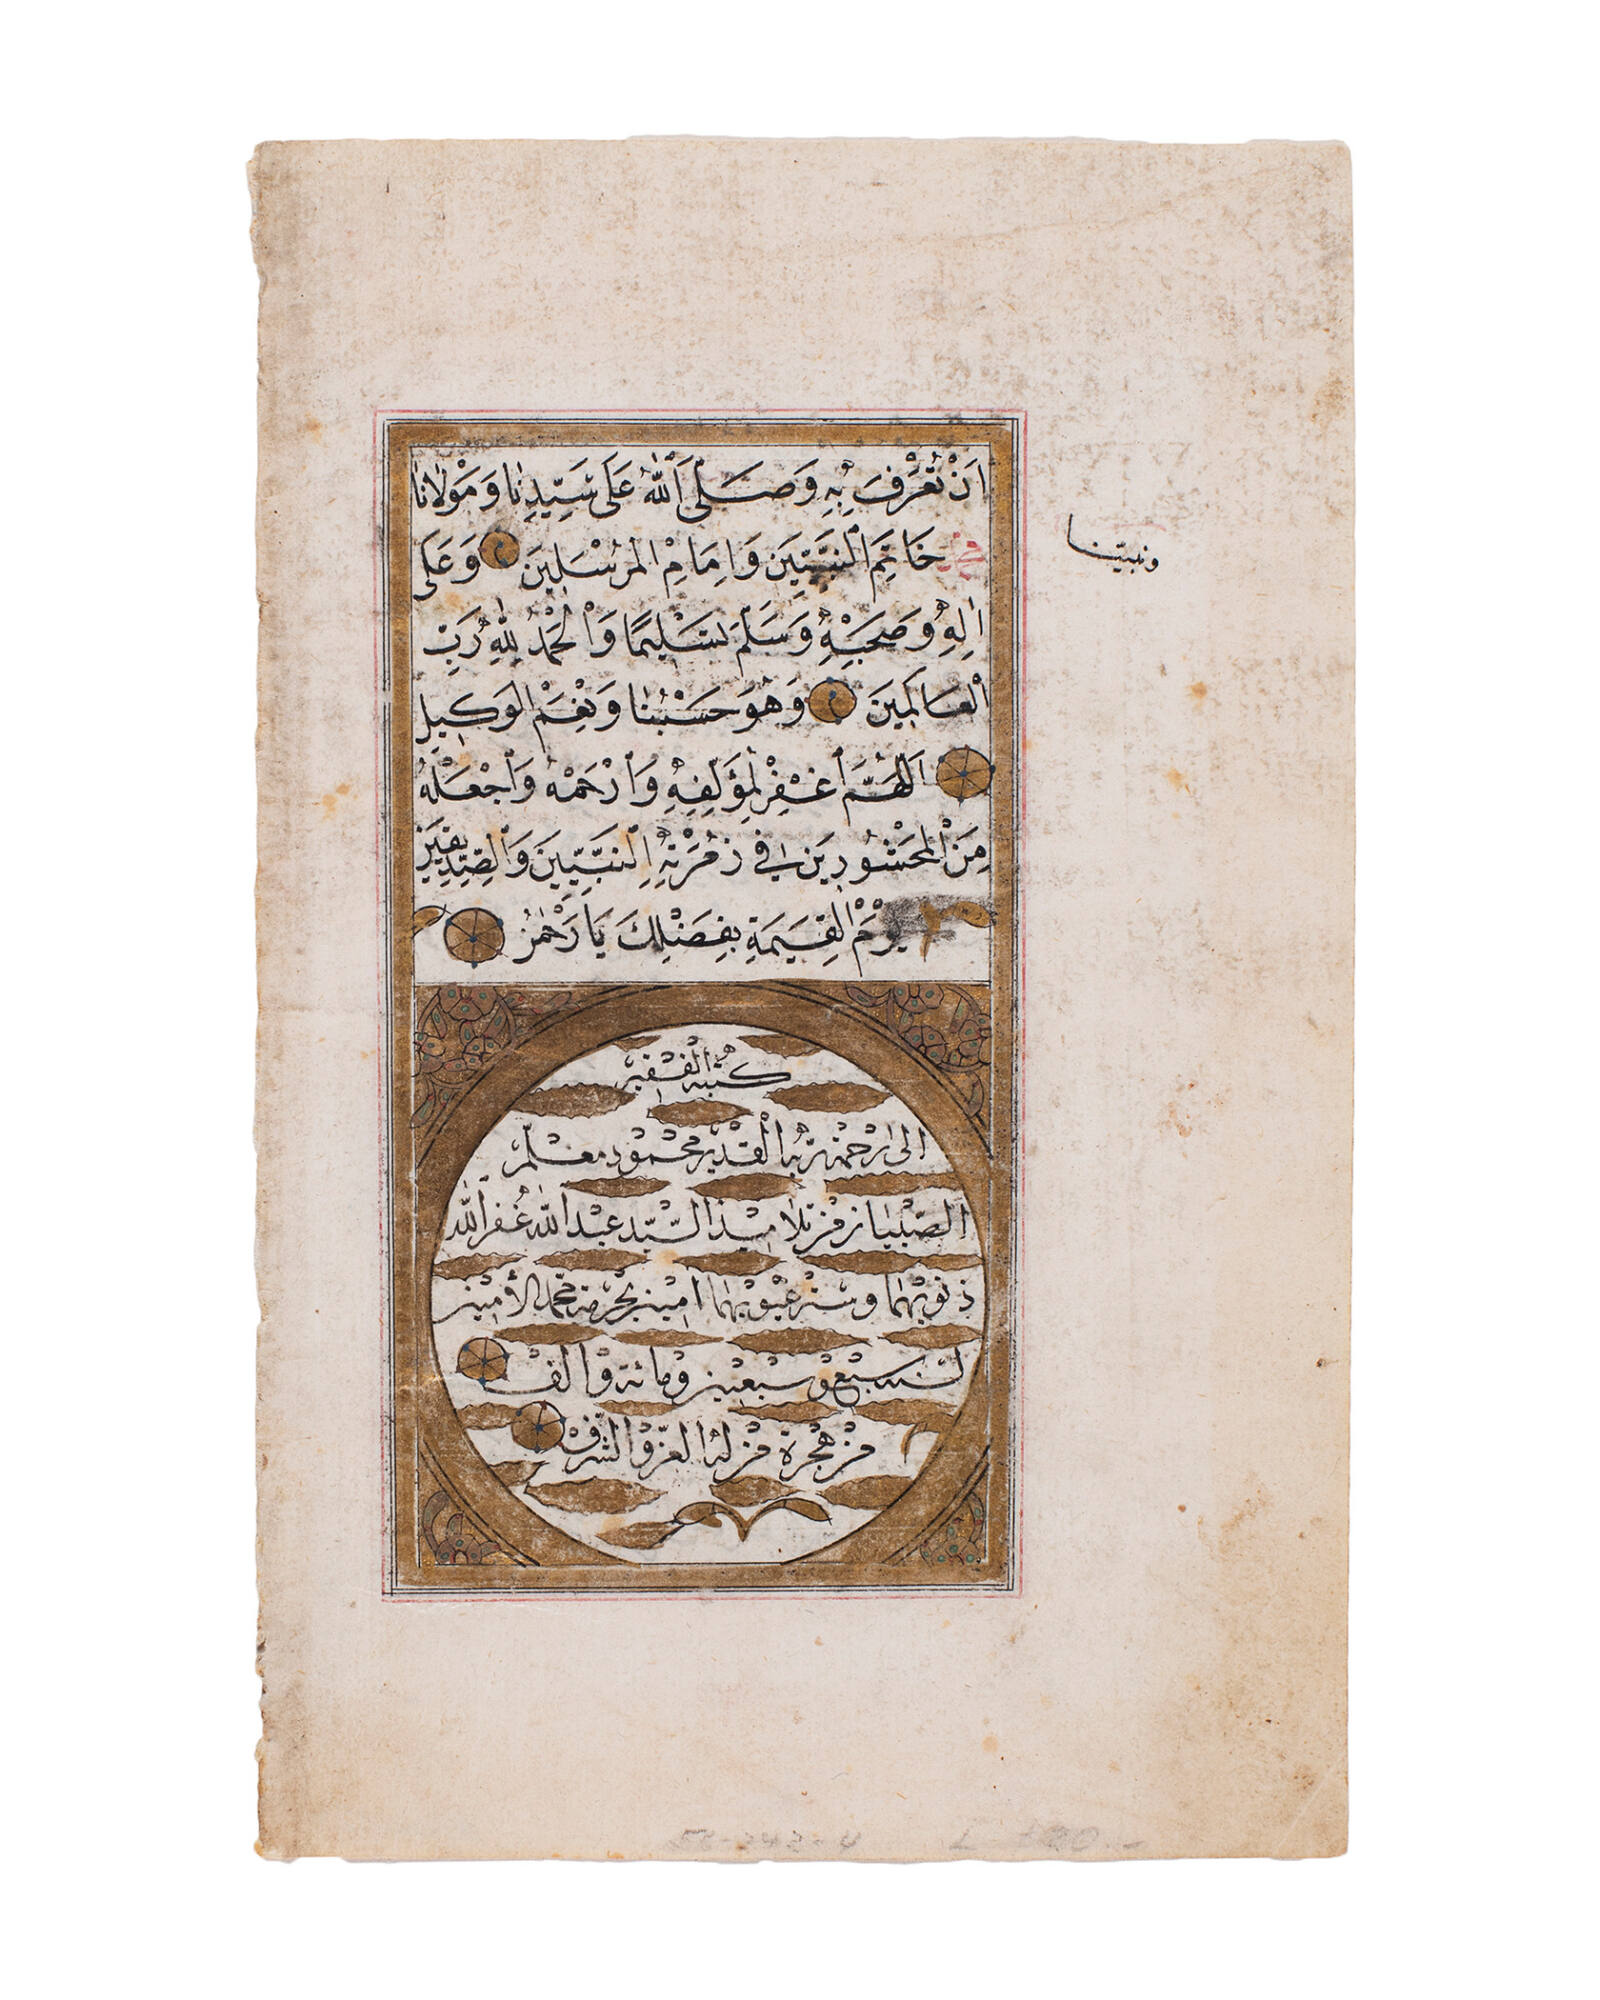 اَنْ تُعْرَفَ بِهِ وَصَلَّى اَللّٰهُ عَلَى سَيِّدِنَا وَمَوْلَانَا
محمد خَاتِمِ النَّبِيِّينَ وَاِمَامِ الْمُرْسَلِينَ وَعَلَى
ونبيّنا
اٰلِهِ وَصَحْبِهِ وَسَلَّمَ تَسْلِيمًا وَالْحَمْدُ لِلّٰهِ رَبِّ
الْعَالَمِينَ وَهُوَ حَسْبُنَا وَنِعْمَ الْوَكِيلِ
اَللّٰهُمَّ اَغْفِرْ لِمُؤَلِّفِهِ وَاَرْحَمْهُ وَاَجْعَلْهُ
مِنَ الْمَحْشُورِينَ فِي زُمْرَتِهِ النَّبِيِّينَ وَالصِّدِّيقِينَ
يَوْمَ الْقِيٰمَةِ بِفَضْلِكَ يَا رَحْمٰنُ
كتبه الفقير
الى رحمة ربه القدير محمود معلّم
الصّبيان من تلاميذ السّيّد عبد الله غفر الله
ذنوبهما وستر عيوبهما امين بحرمة محمّد الأمين
لسنة سبع وسبعين ومائة والف
من هجرة من له العزّ والشرف